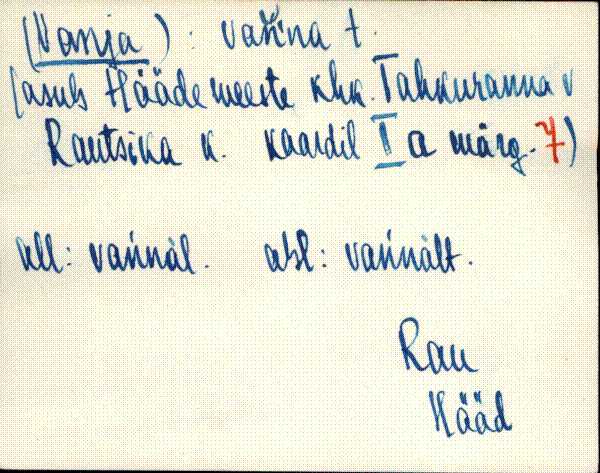 (Vanja): vańna t.
(asub Häädemeeste khk. Tahkuranna v
Rautsika k. kaardil I a märg. 7)
all: vańnàl. abl: vańnàlt.
Rau
Hääd